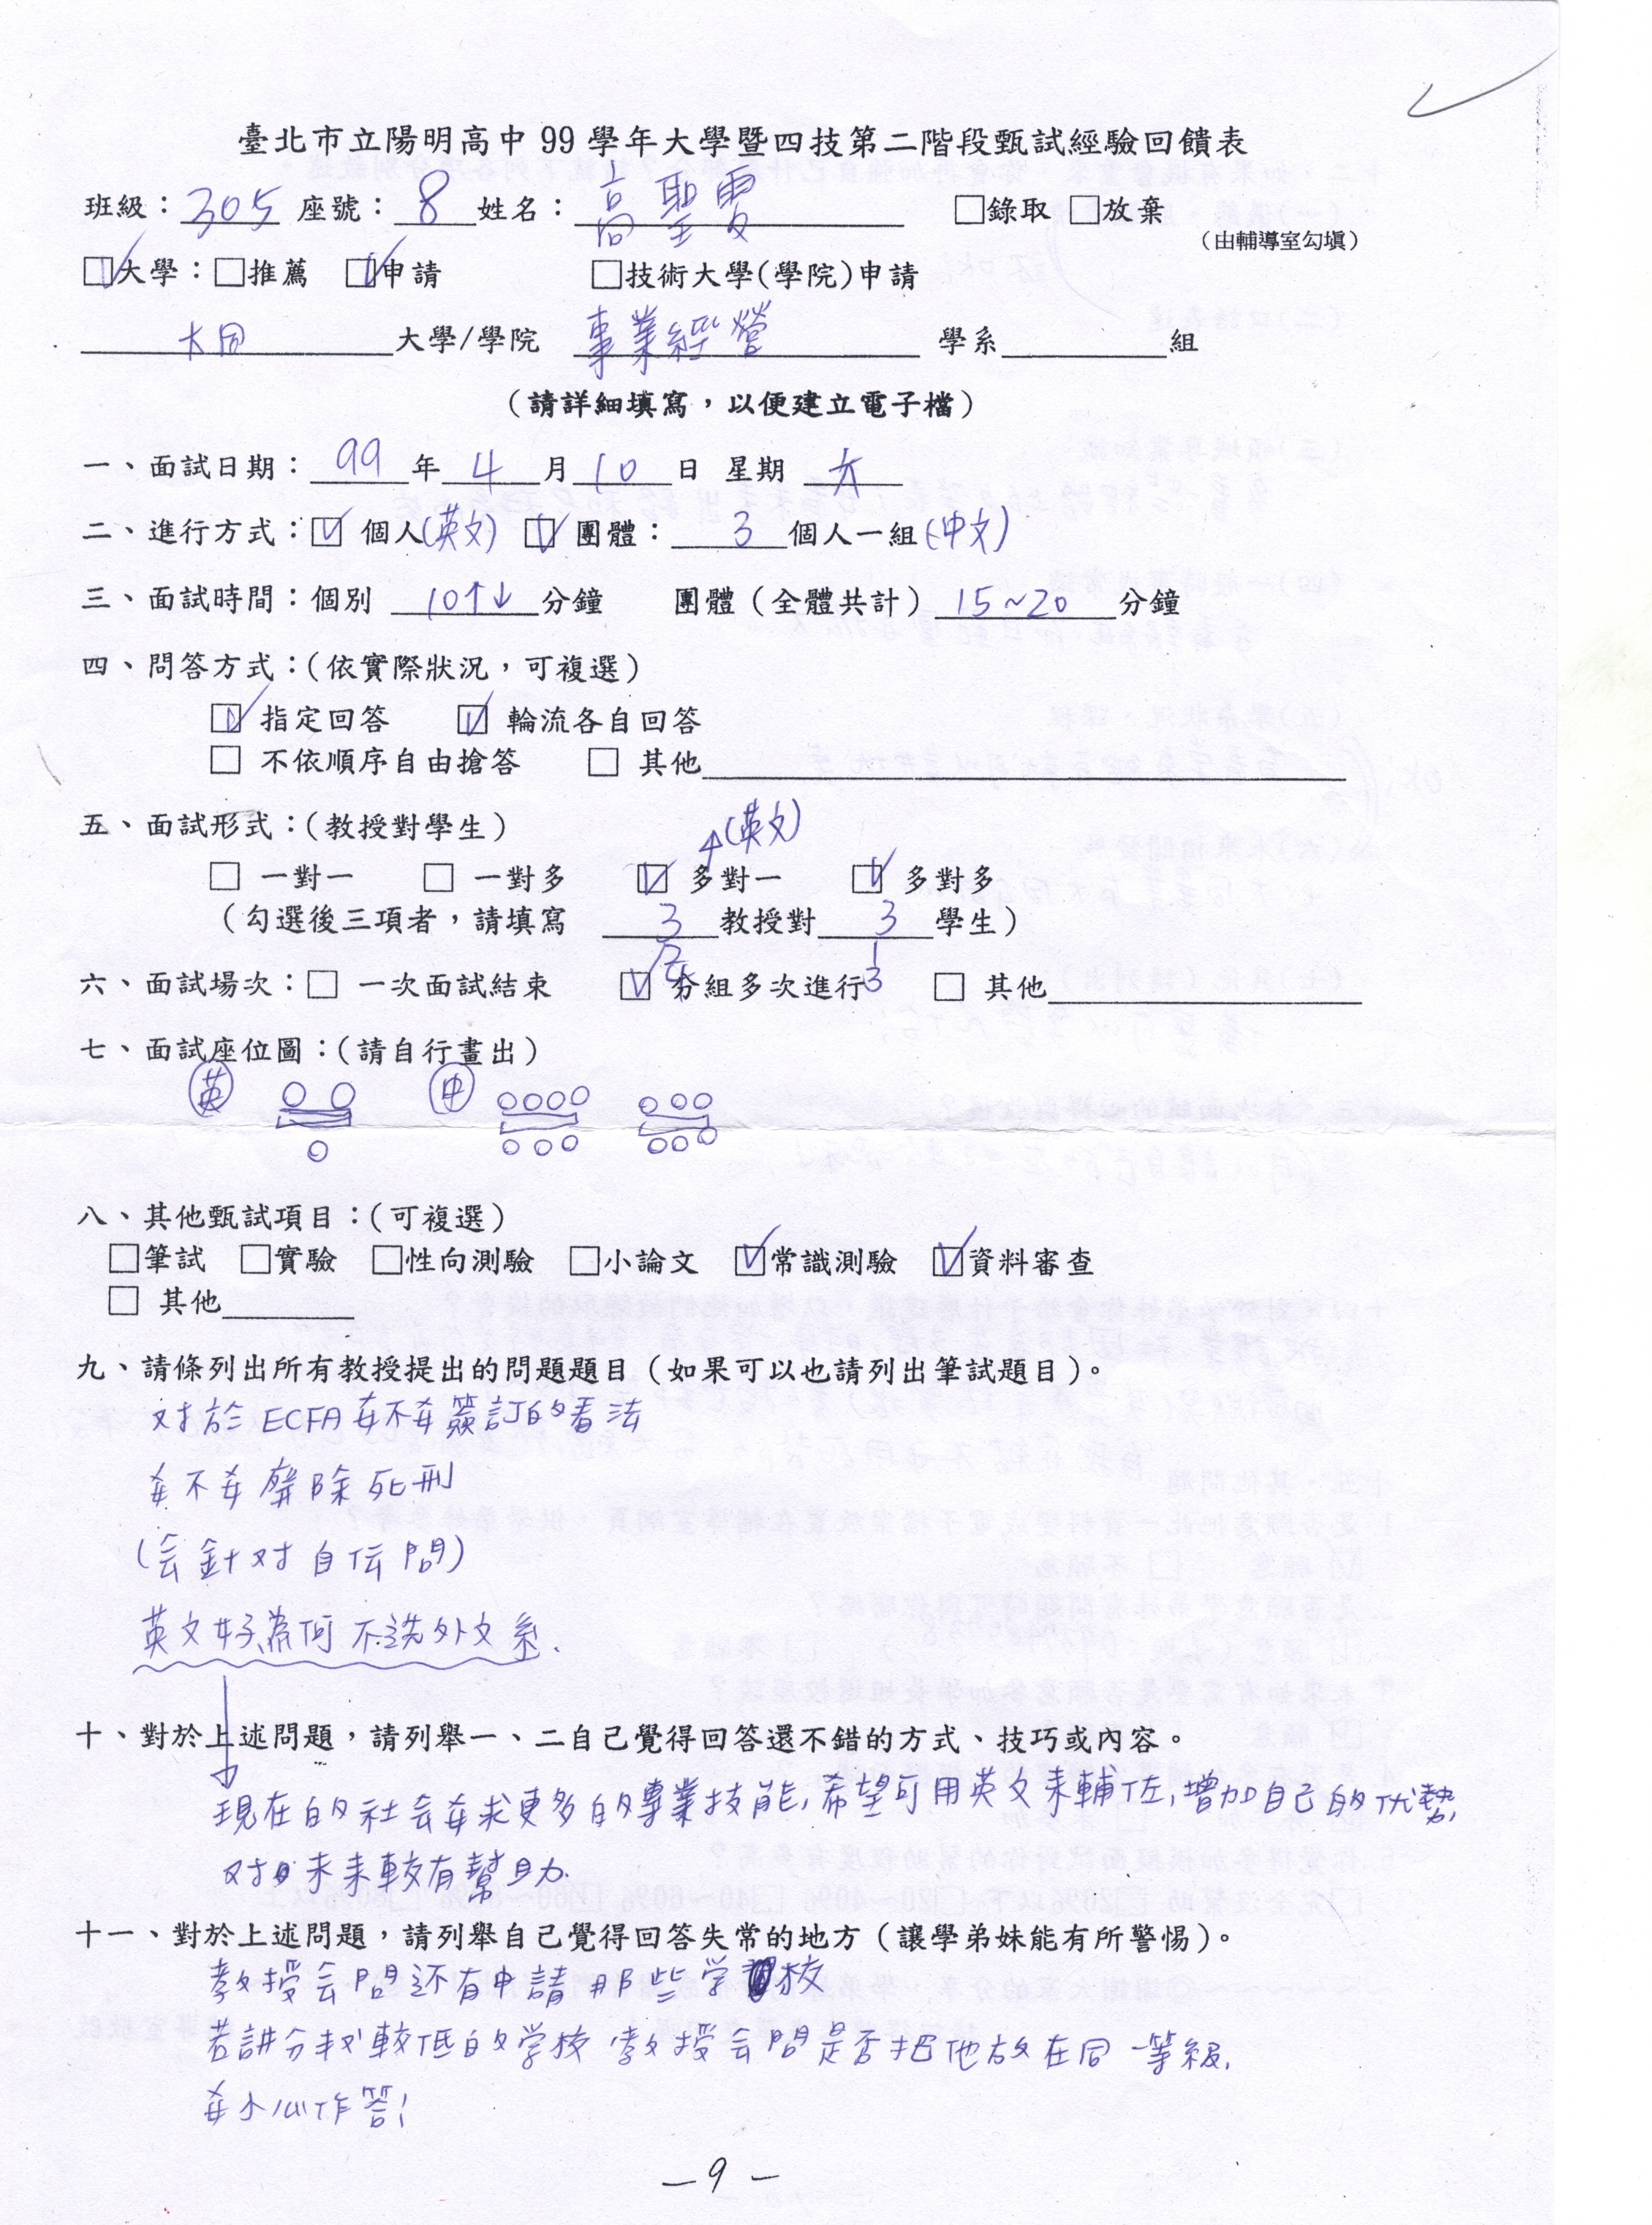 臺北市立陽明高中 99 學年大學暨四技第二階段甄試經驗回饋表
班級：305 座號：8 姓名：高聖 □錄取 □放棄
（由輔導室勾填）
☑大學：□推薦 ☑申請 □技術大學(學院)申請
大同 大學/學院 事業經營 學系 組
（請詳細填寫，以便建立電子檔）
一、面試日期：99 年 4 月 10 日 星期 六
二、進行方式：☑ 個人(英文) ☑ 團體：3 個人一組(中文)
三、面試時間：個別 10↑↓ 分鐘 團體（全體共計）15~20 分鐘
四、問答方式：(依實際狀況，可複選)
☑ 指定回答 ☑ 輪流各自回答
□ 不依順序自由搶答 □ 其他
五、面試形式：(教授對學生) (英文)
□ 一對一 □ 一對多 ☑ 多對一 ☑ 多對多
（勾選後三項者，請填寫 3 教授對 3 學生）
六、面試場次：□ 一次面試結束 ☑ 分組多次進行 □ 其他
七、面試座位圖：(請自行畫出)
英 中
八、其他甄試項目：(可複選)
□筆試 □實驗 □性向測驗 □小論文 ☑常識測驗 ☑資料審查
□ 其他
九、請條列出所有教授提出的問題題目（如果可以也請列出筆試題目）。
对於 ECFA 要不要簽訂的看法
要不要廢除死刑
(会針对自伝問)
英文好為何不选外文系.
十、對於上述問題，請列舉一、二自己覺得回答還不錯的方式、技巧或內容。
現在的社会要求更多的專業技能,希望可用英文來輔佐,增加自己的优勢,
对未來較有幫助.
十一、對於上述問題，請列舉自己覺得回答失常的地方（讓學弟妹能有所警惕）。
教授会問还有申請那些学校
若講分数較低的学校 教授会問是否把他放在同一等級,
要小心作答!
－9－